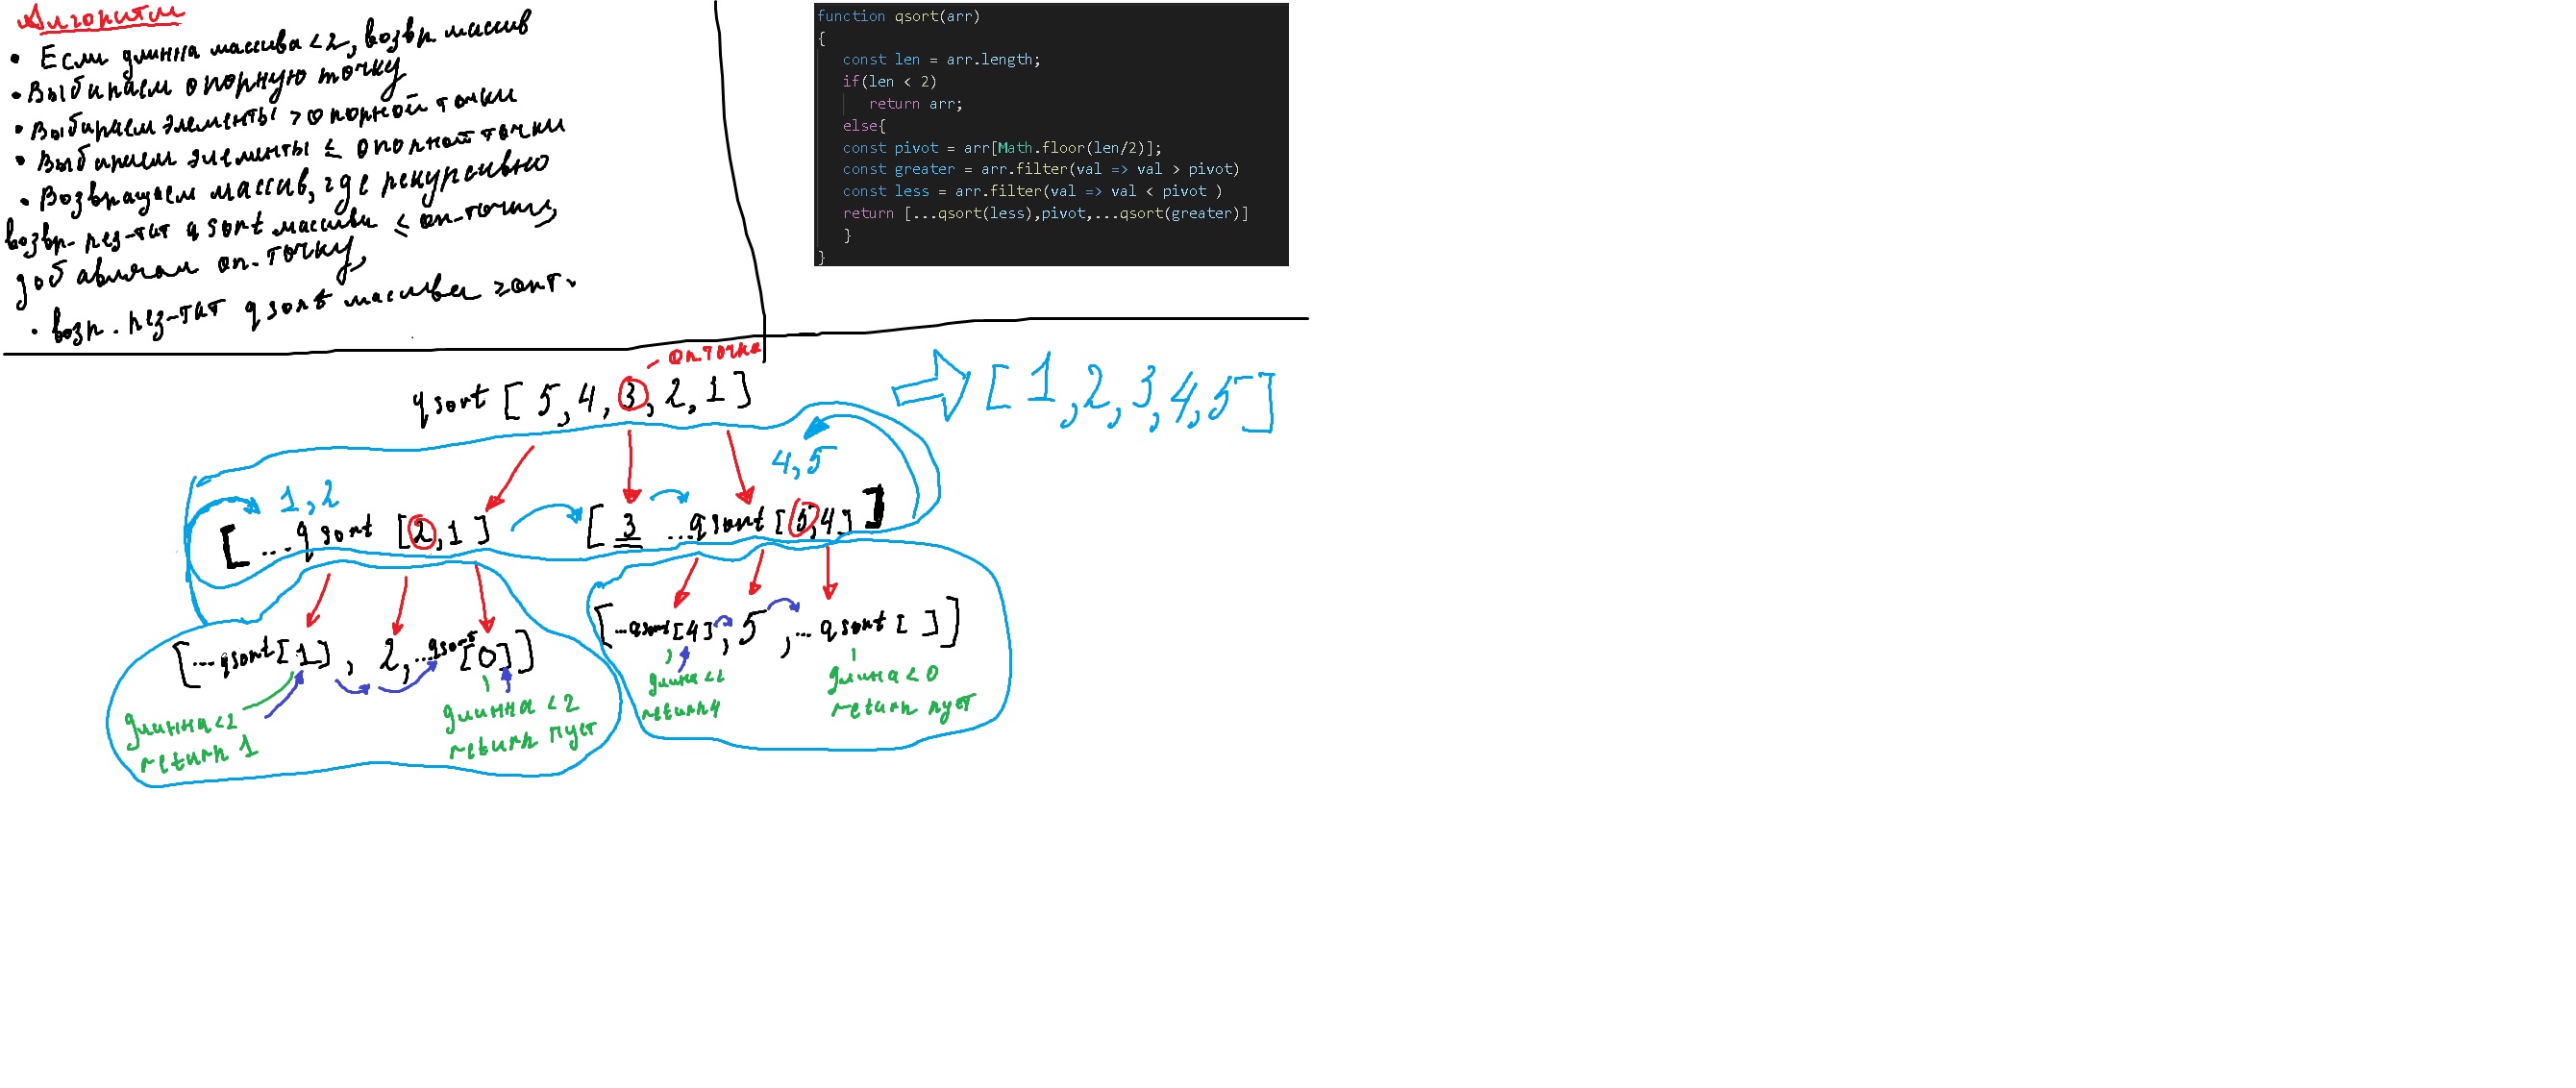 Алгоритм
• Если длинна массива <2, возвр массив
• Выбираем опорную точку
• Выбираем элементы > опорной точки
• Выбираем элементы ≤ опорной точки
• Возвращаем массив, где рекурсивно
возвр. рез-тат qsort массива ≤ оп-точки,
добавляем оп-точку,
• возр. рез-тат qsort массива >опт.
function qsort(arr)
{
const len = arr.length;
if(len < 2)
return arr;
else{
const pivot = arr[Math.floor(len/2)];
const greater = arr.filter(val => val > pivot)
const less = arr.filter(val => val < pivot )
return [...qsort(less),pivot,...qsort(greater)]
}
}
- оп.точка
qsort [ 5, 4, 3, 2, 1 ]
[ 1, 2, 3, 4, 5 ]
1, 2
4, 5
[ ...qsort [2,1]
[ 3 ...qsort [5,4] ]
[...qsort[1], 2, ...qsort[0]]
[...qsort[4], 5, ...qsort [ ]]
длинна<2
return 1
длинна <2
return пуст
return 4
длина < 0
return пуст